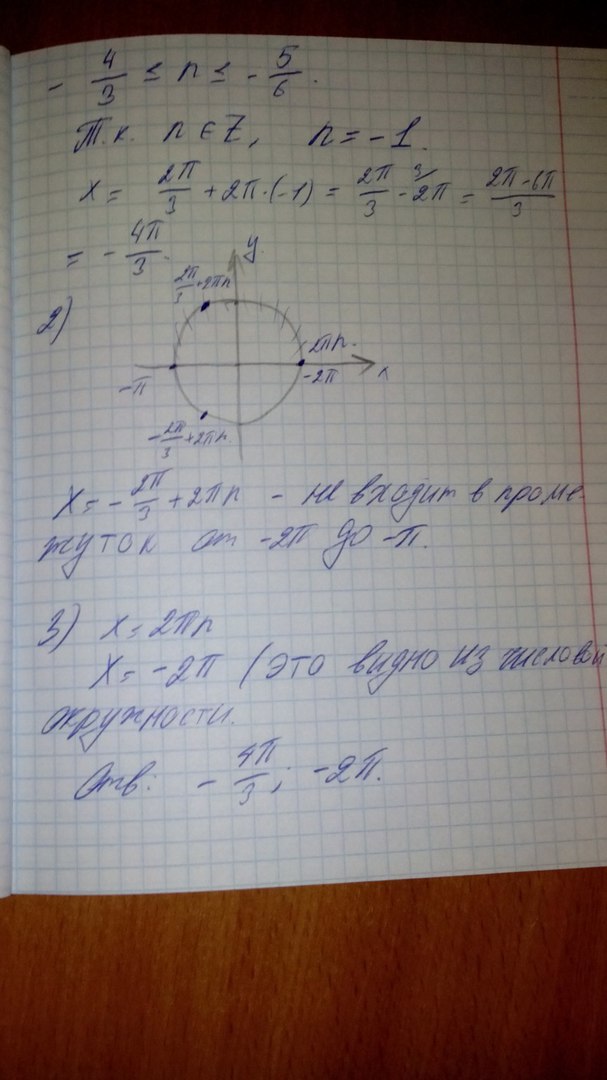 - 4/3 ≤ n ≤ - 5/6.
Т.к. n ∈ Z, n = -1.
x = 2π/3 + 2π·(-1) = 2π/3 - 2π = 2π-6π/3
= - 4π/3.
2)
y
2π/3 + 2πn
2πn.
-π
-2π
x
- 2π/3 + 2πn.
x = - 2π/3 + 2πn - не входит в проме-
жуток от -2π до -π.
3) x = 2πn
x = -2π (это видно из числовой
окружности.
Отв: - 4π/3; -2π.